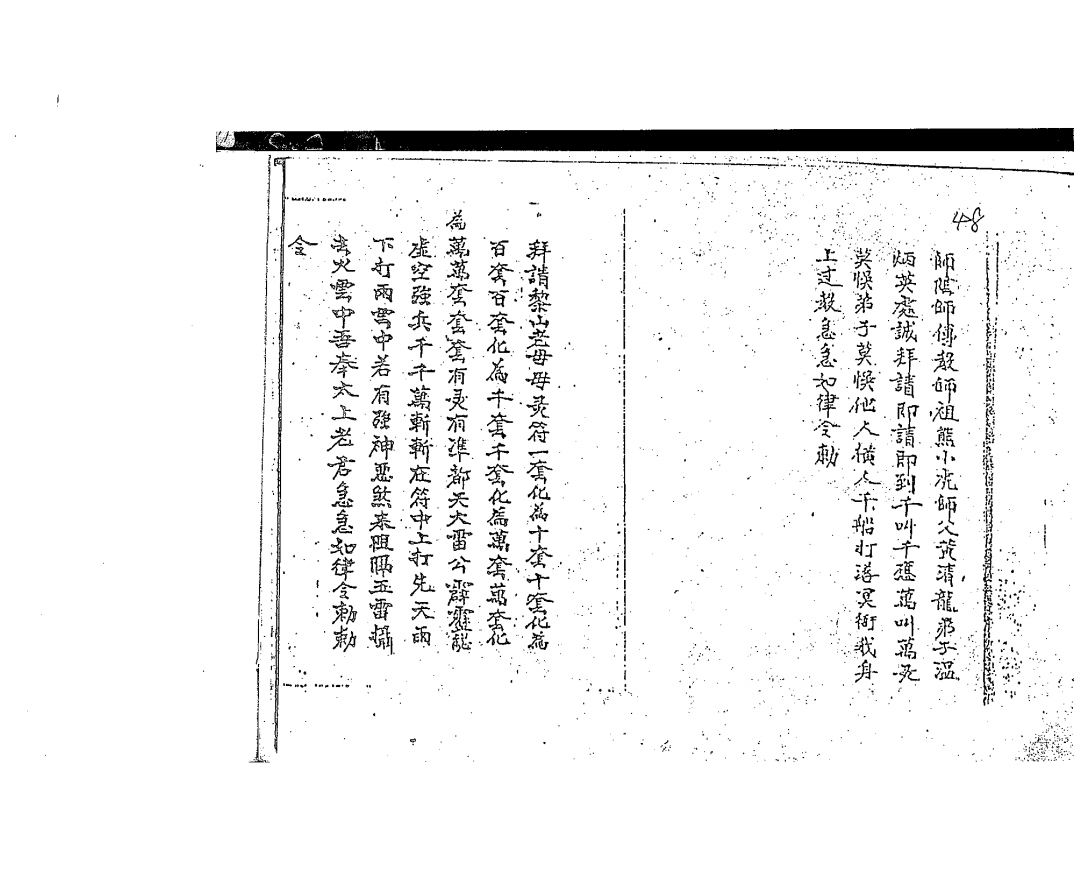 48
師陰師傅教師祖熊小洸師父黃清龍弟子溫
炳英虔誠拜請即請即到千叫千應萬叫萬灵
莫悞弟子莫悞他人橫人千船打落冥衙我身
上过教急急如律令勅
一。拜請黎山老母母灵符一套化為十套十套化為
百套百套化為千套千套化為萬套萬套化
為萬萬套套套有灵有準都天大雷公霹靂
虛空強兵千千萬斬斬在符中上打先天雨
下打雨雲中若有強神惡煞來阻隔五雷攝
去火雲中吾奉太上老君急急如律令勅勅
令